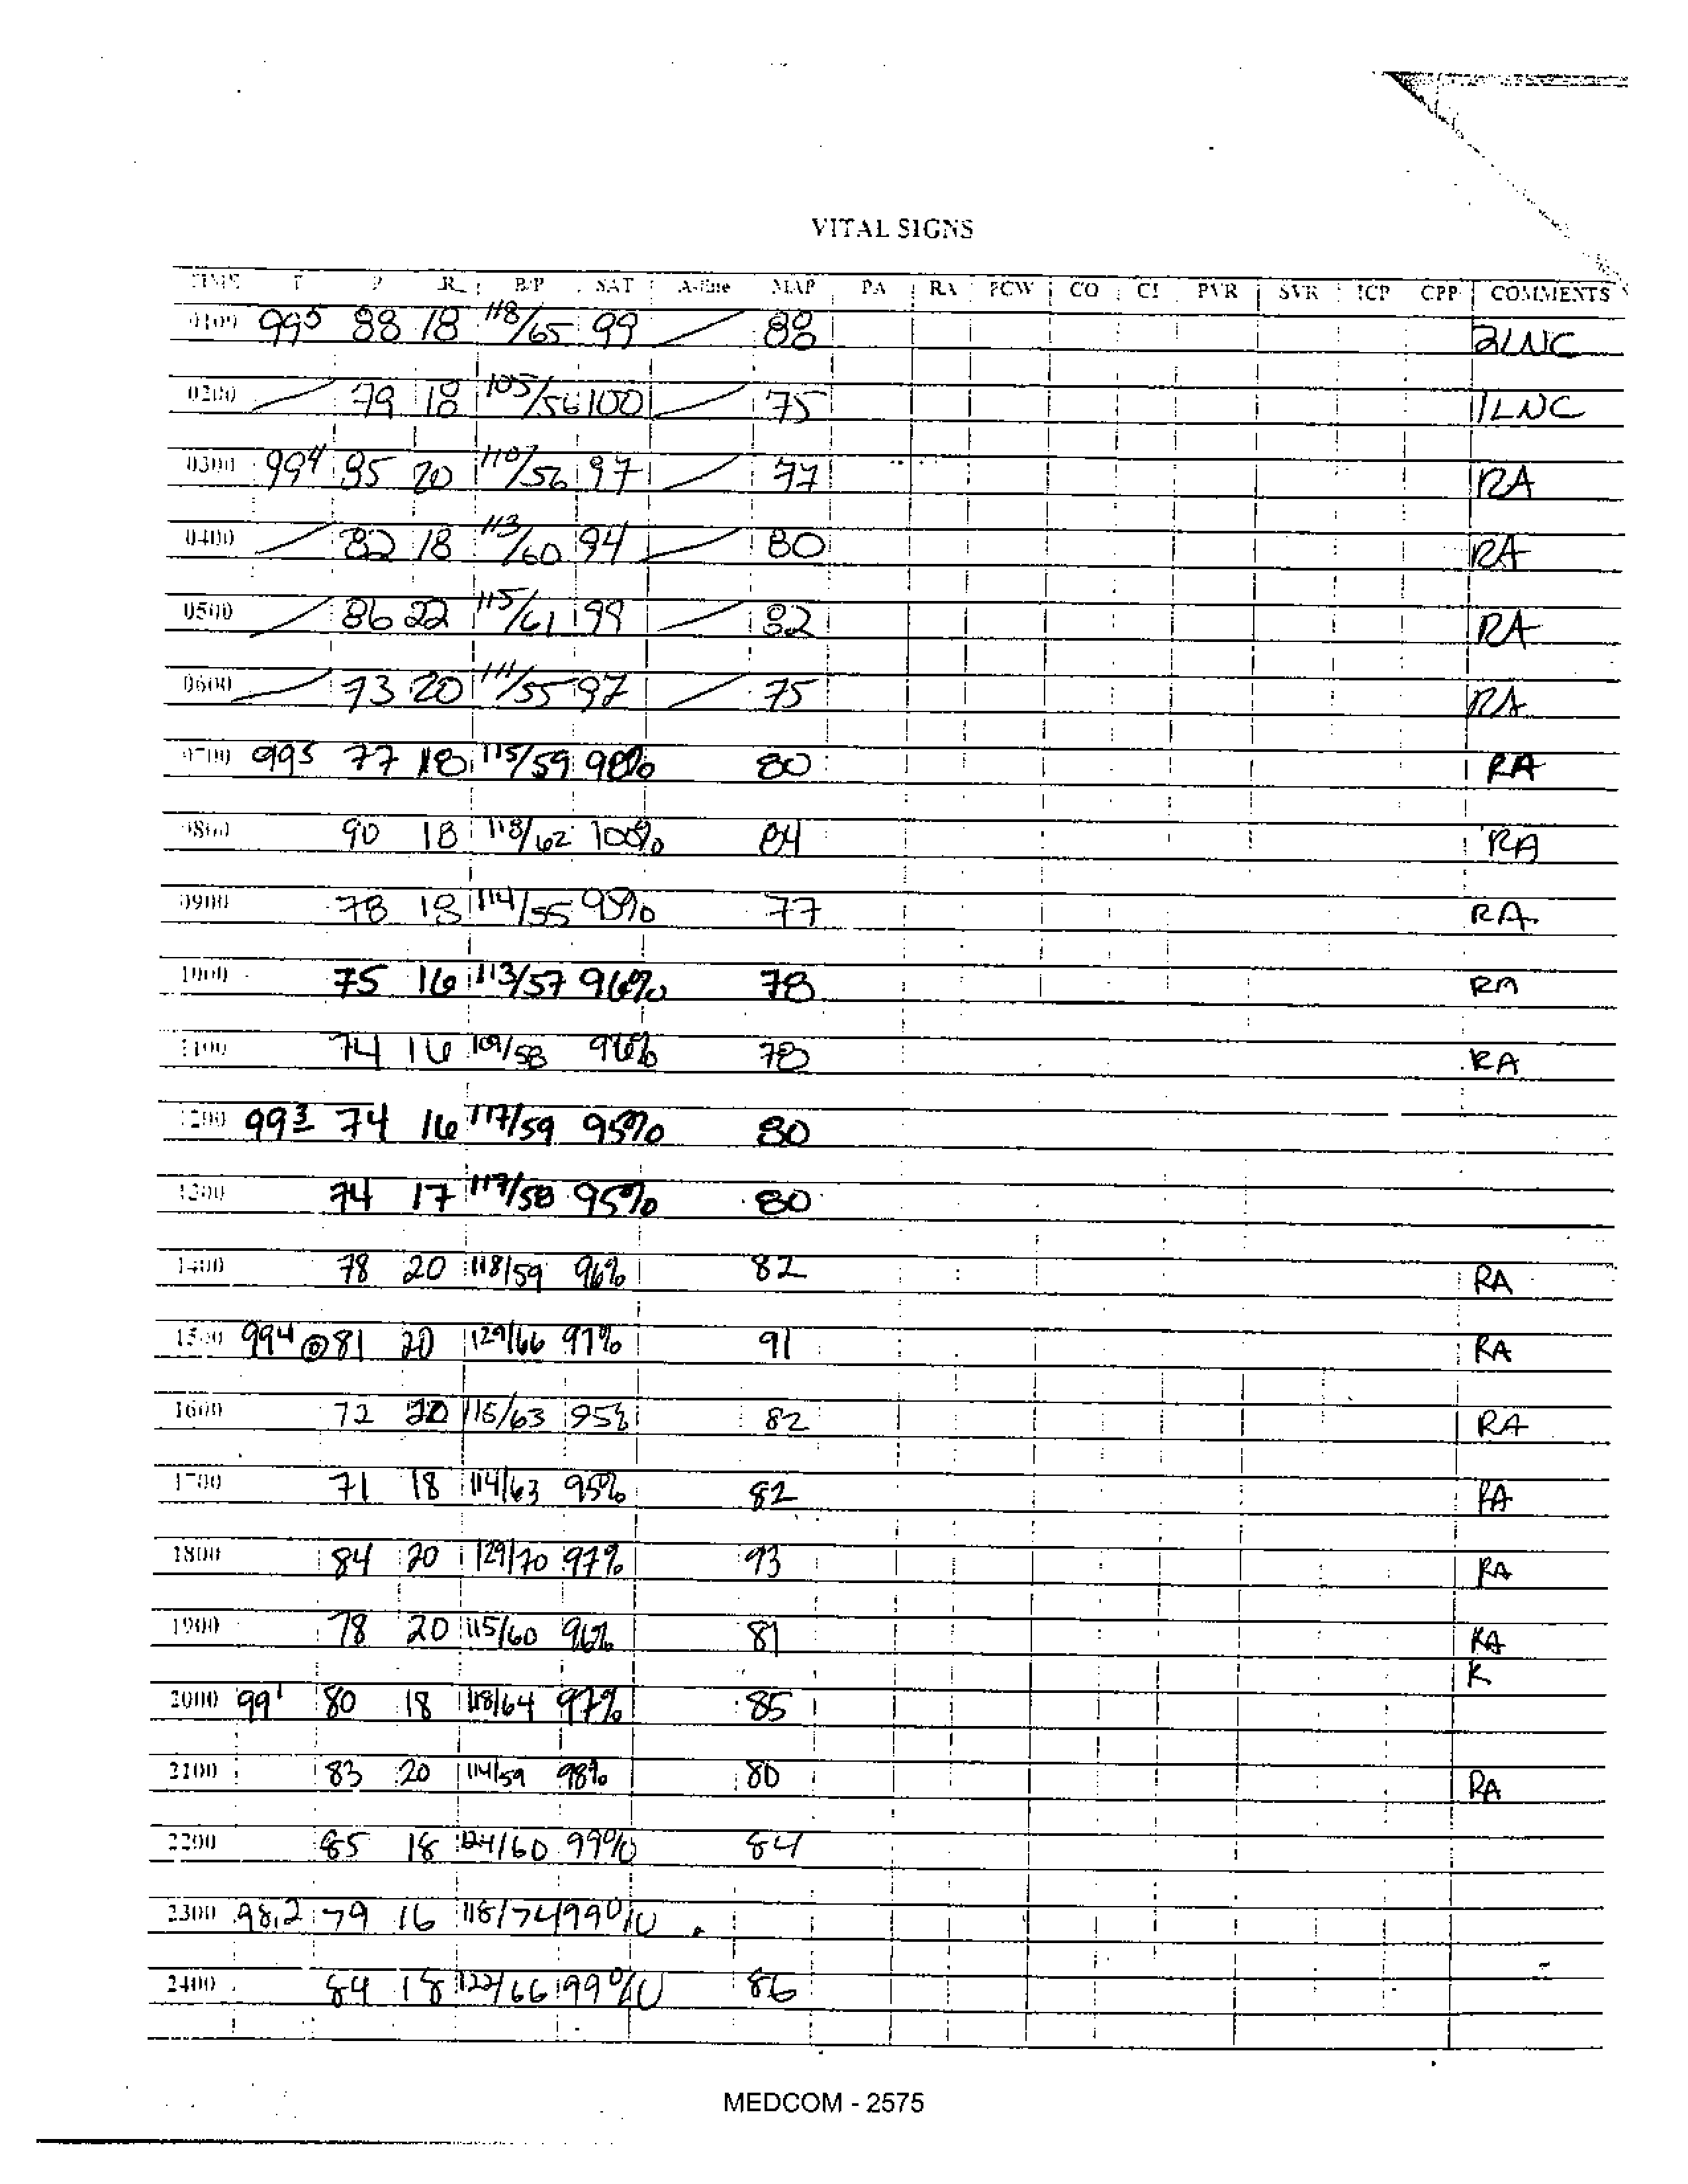 VITAL SIGNS
TIME T P R B/P SAT A-line MAP PA RA PCW CO CI PVR SVR ICP CPP COMMENTS
0100 99⁵ 88 18 118/65 99 88 2LNC
0200 79 18 105/56 100 75 1LNC
0300 99⁴ 85 20 110/56 97 77 RA
0400 82 18 113/60 94 80 RA
0500 86 22 115/61 99 82 RA
0600 73 20 111/55 97 75 RA
0700 99⁵ 77 18 115/59 98% 80 RA
0800 90 18 118/62 100% 84 RA
0900 78 18 114/55 95% 77 RA
1000 75 16 113/57 96% 78 RA
1100 74 16 109/58 96% 78 RA
1200 99³ 74 16 117/59 95% 80
1300 74 17 117/58 95% 80
1400 78 20 118/59 96% 82 RA
1500 99⁴ 81 20 129/66 97% 91 RA
1600 72 20 115/63 95% 82 RA
1700 71 18 114/63 95% 82 RA
1800 84 20 129/70 97% 93 RA
1900 78 20 115/60 96% 81 RA
R
2000 99¹ 80 18 118/64 97% 85
2100 83 20 114/59 98% 80 RA
2200 85 18 124/60 99% 84
2300 98.2 79 16 118/74 99%
2400 84 18 122/66 99% 86
MEDCOM - 2575